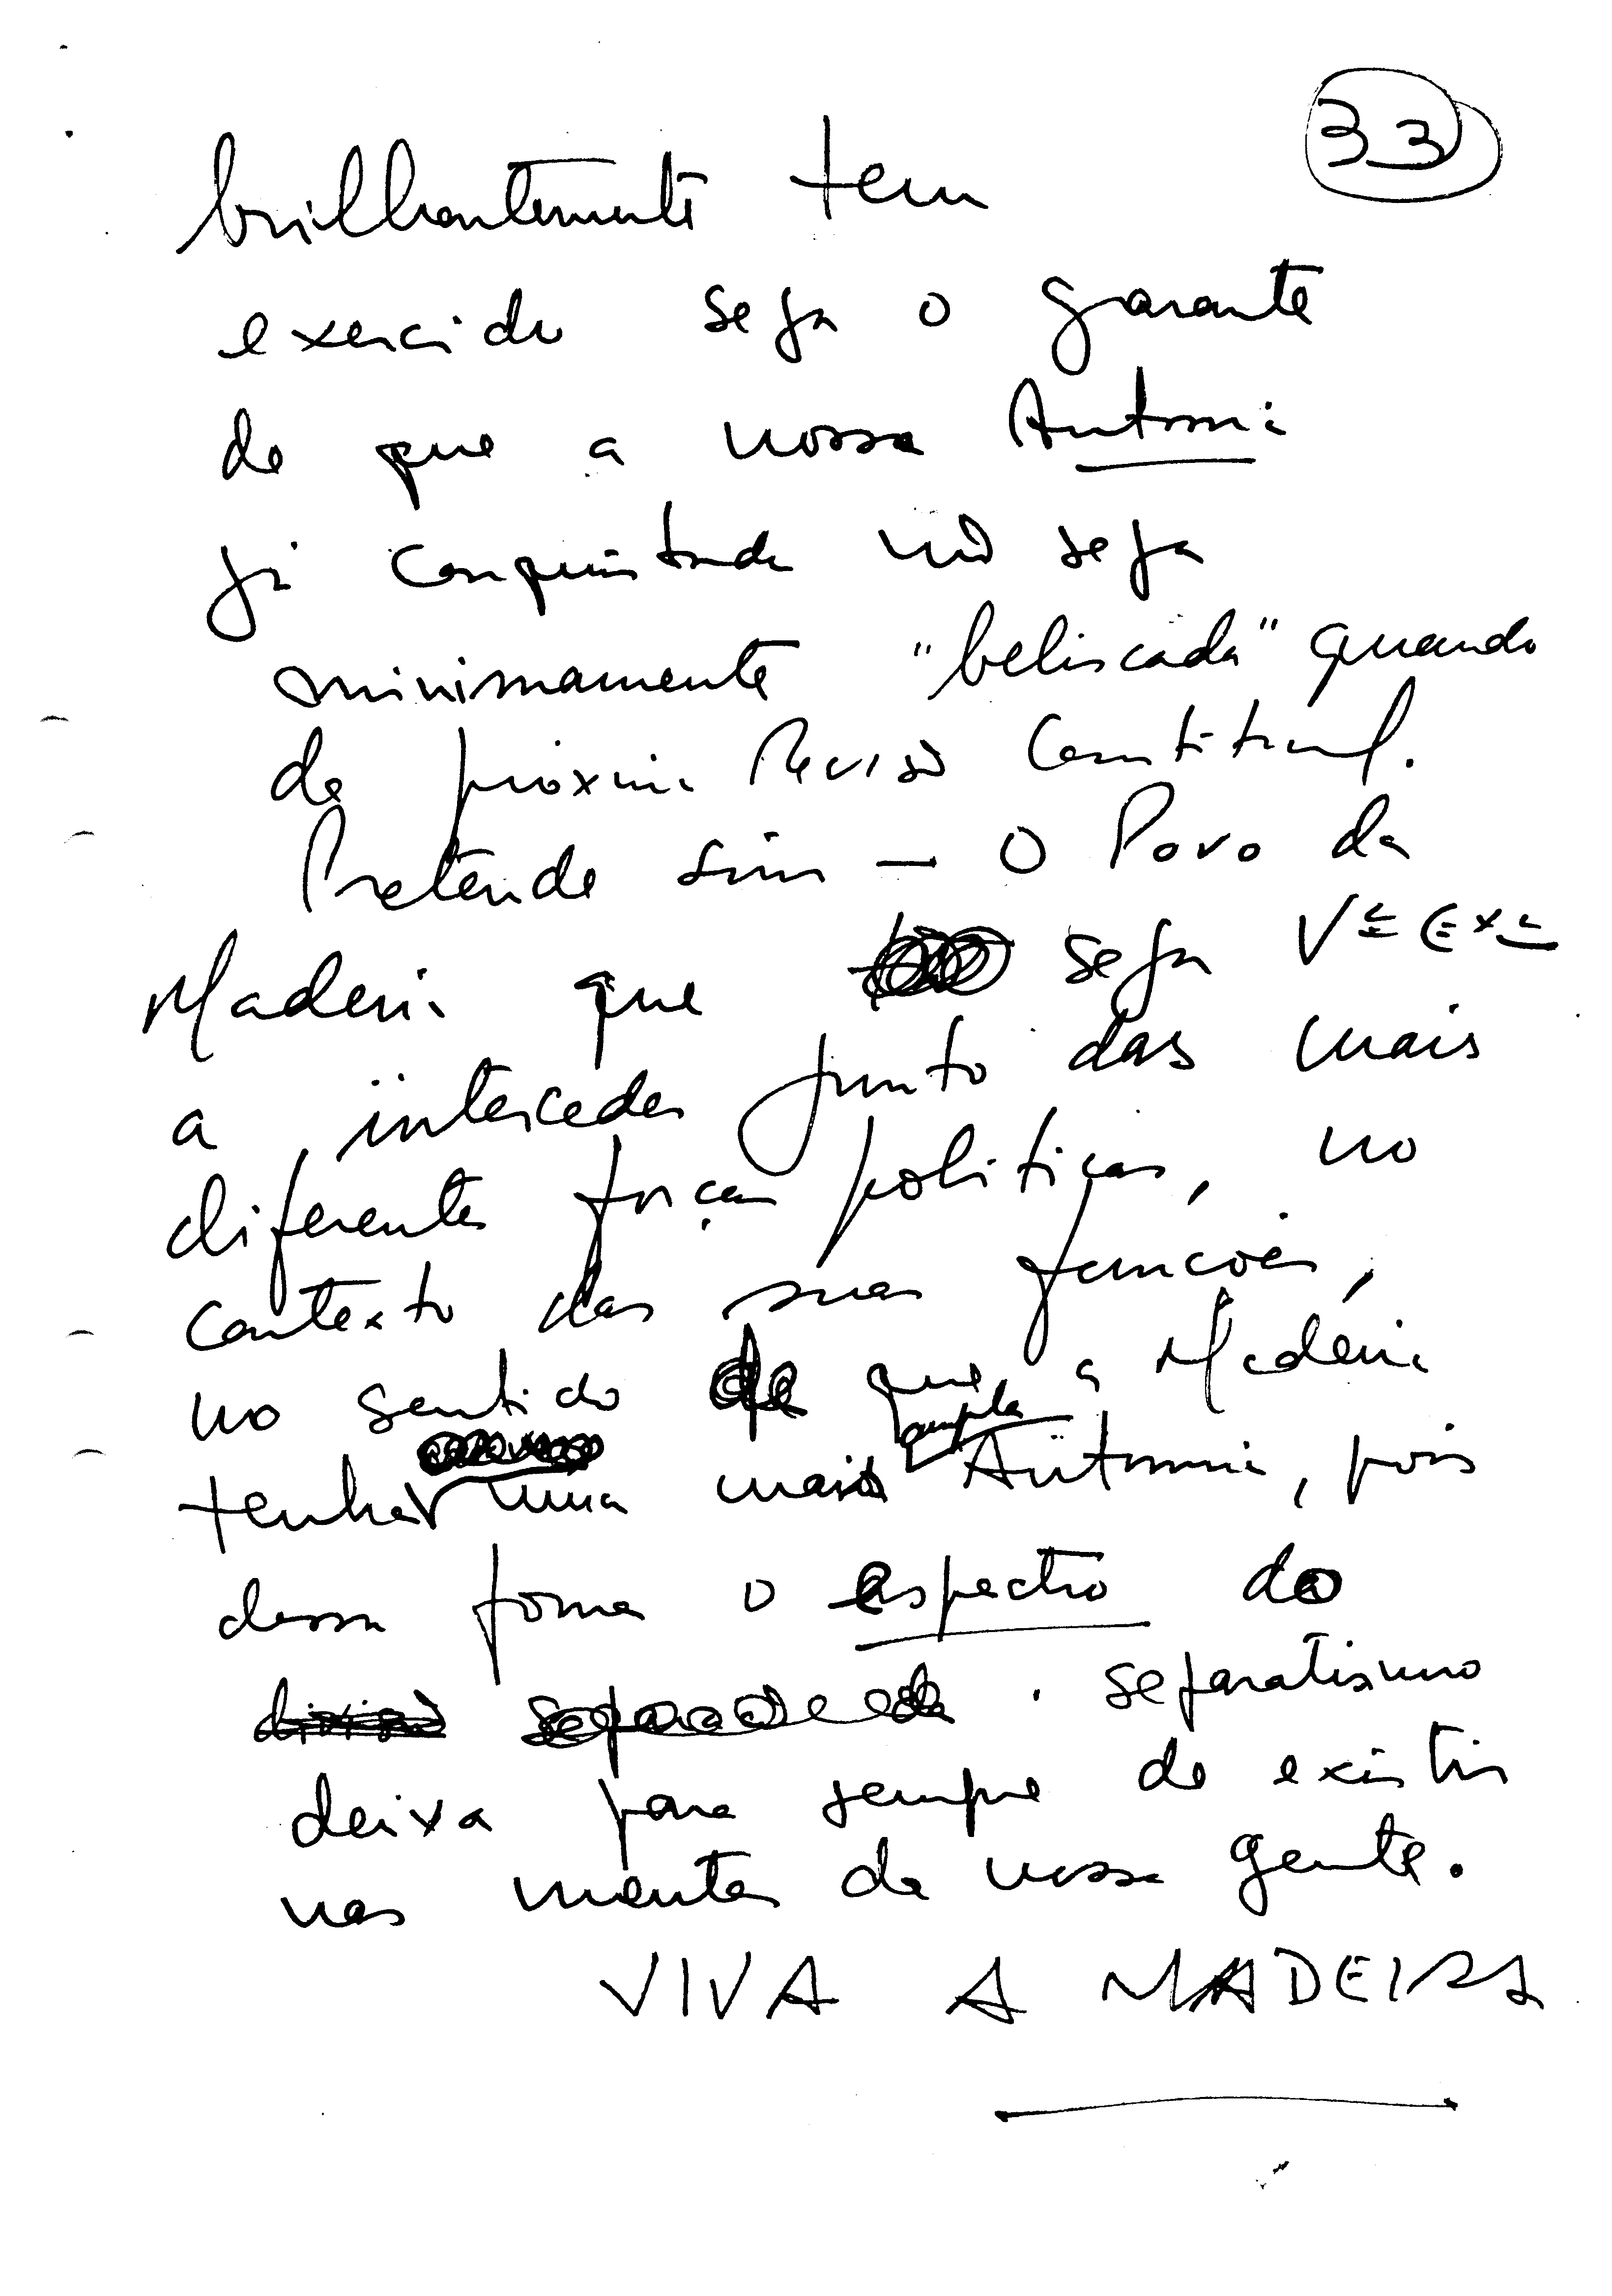 33
brilhantemente tem
exercido seja o garante
de que a nossa Autonomia
já conquistada não seja
minimamente "beliscada" quando
da próxima Revisão Constitucional.
Pretende sim — O Povo da
Madeira que seja Vª Exª
a interceder junto das mais
diferentes forças politicas, no
contexto das suas funcões,
no sentido de que a Madeira
tenha uma mais ampla Autonomia, pois
dessa forma o espectro do
divisão separatismo
deixa para sempre de existir
nas mentes da nossa gente.
VIVA A MADEIRA